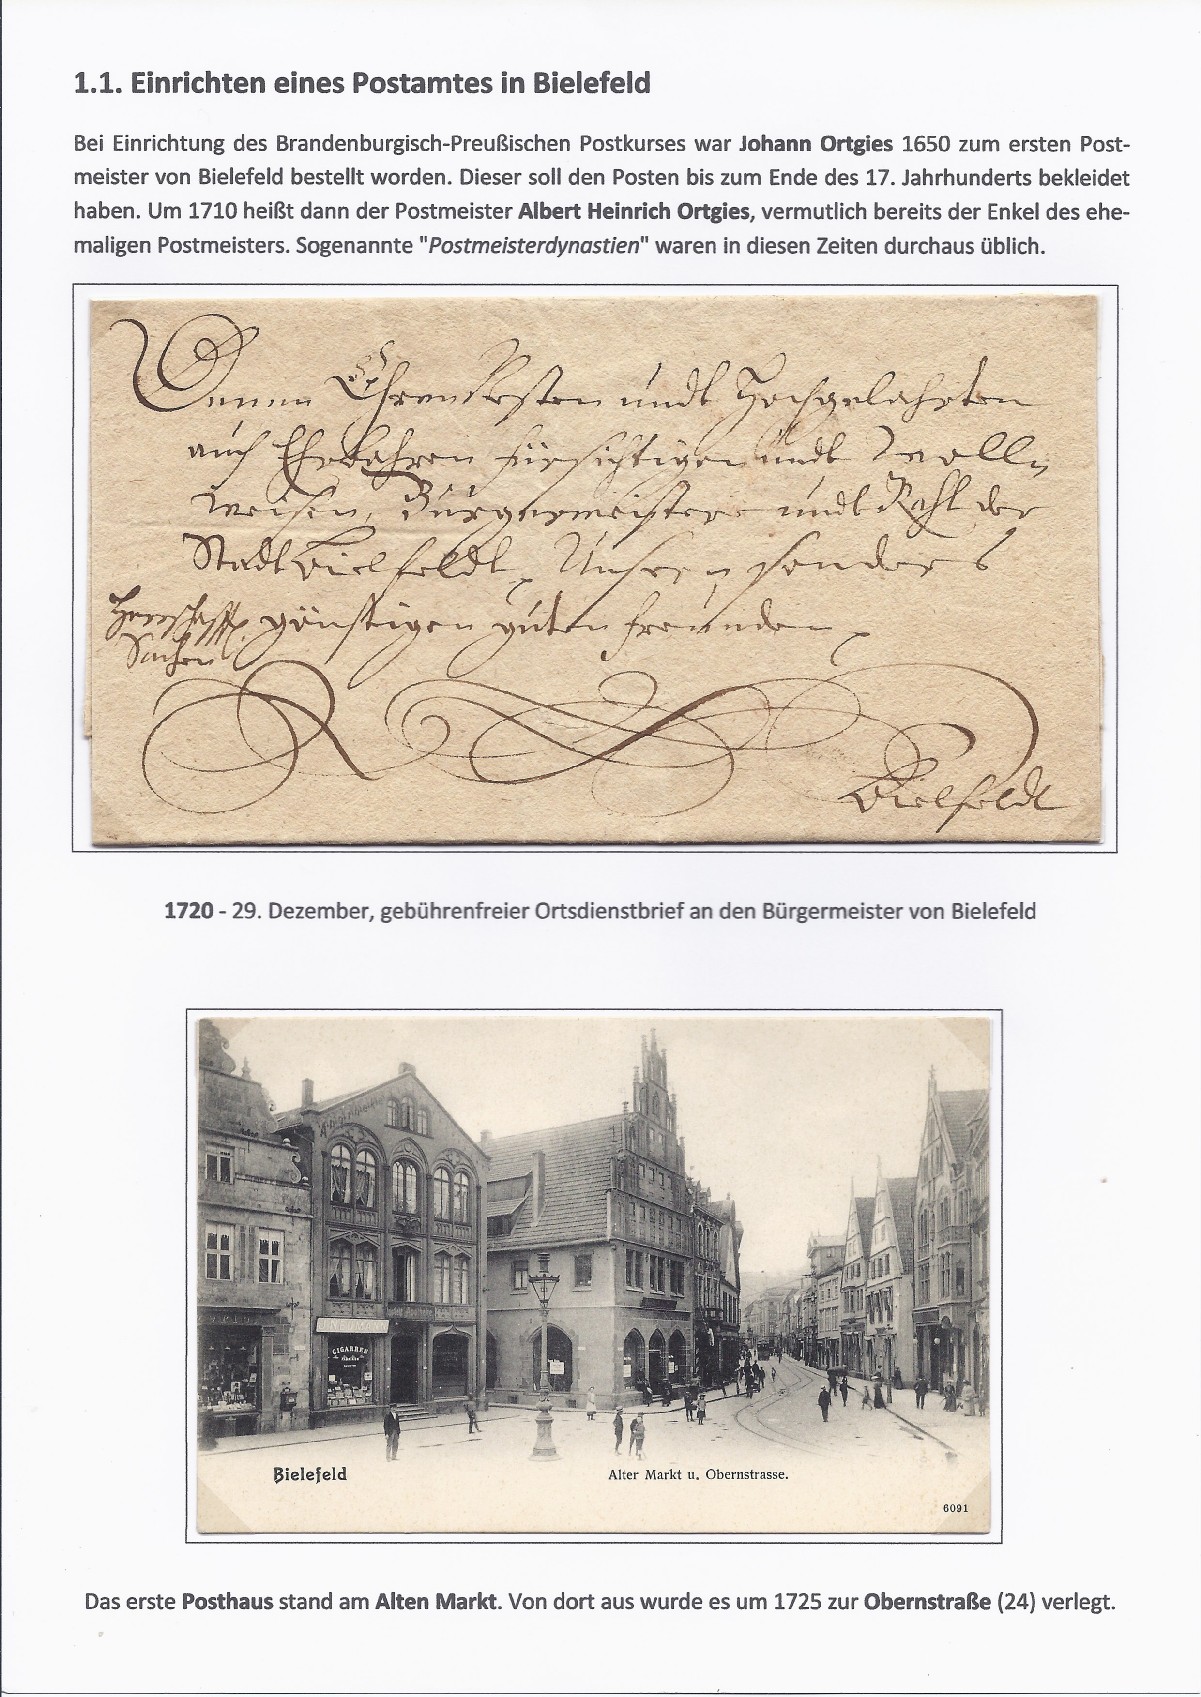 1.1. Einrichten eines Postamtes in Bielefeld
Bei Einrichtung des Brandenburgisch-Preußischen Postkurses war Johann Ortgies 1650 zum ersten Post-
meister von Bielefeld bestellt worden. Dieser soll den Posten bis zum Ende des 17. Jahrhunderts bekleidet
haben. Um 1710 heißt dann der Postmeister Albert Heinrich Ortgies, vermutlich bereits der Enkel des ehe-
maligen Postmeisters. Sogenannte "Postmeisterdynastien" waren in diesen Zeiten durchaus üblich.
Denen Ehren Vesten undt Hochgelahrten
auch Ehrbahren fürsichtigen undt Woll
weisen, Bürgermeistere undt Raht der
Stadt Bielfeldt, Unsern sonders
Herrschaftl. günstigen guten freunden,
Sachen
Bielfeldt
1720 - 29. Dezember, gebührenfreier Ortsdienstbrief an den Bürgermeister von Bielefeld
CIGARREN
Bielefeld
Alter Markt u. Obernstrasse.
6091
Das erste Posthaus stand am Alten Markt. Von dort aus wurde es um 1725 zur Obernstraße (24) verlegt.